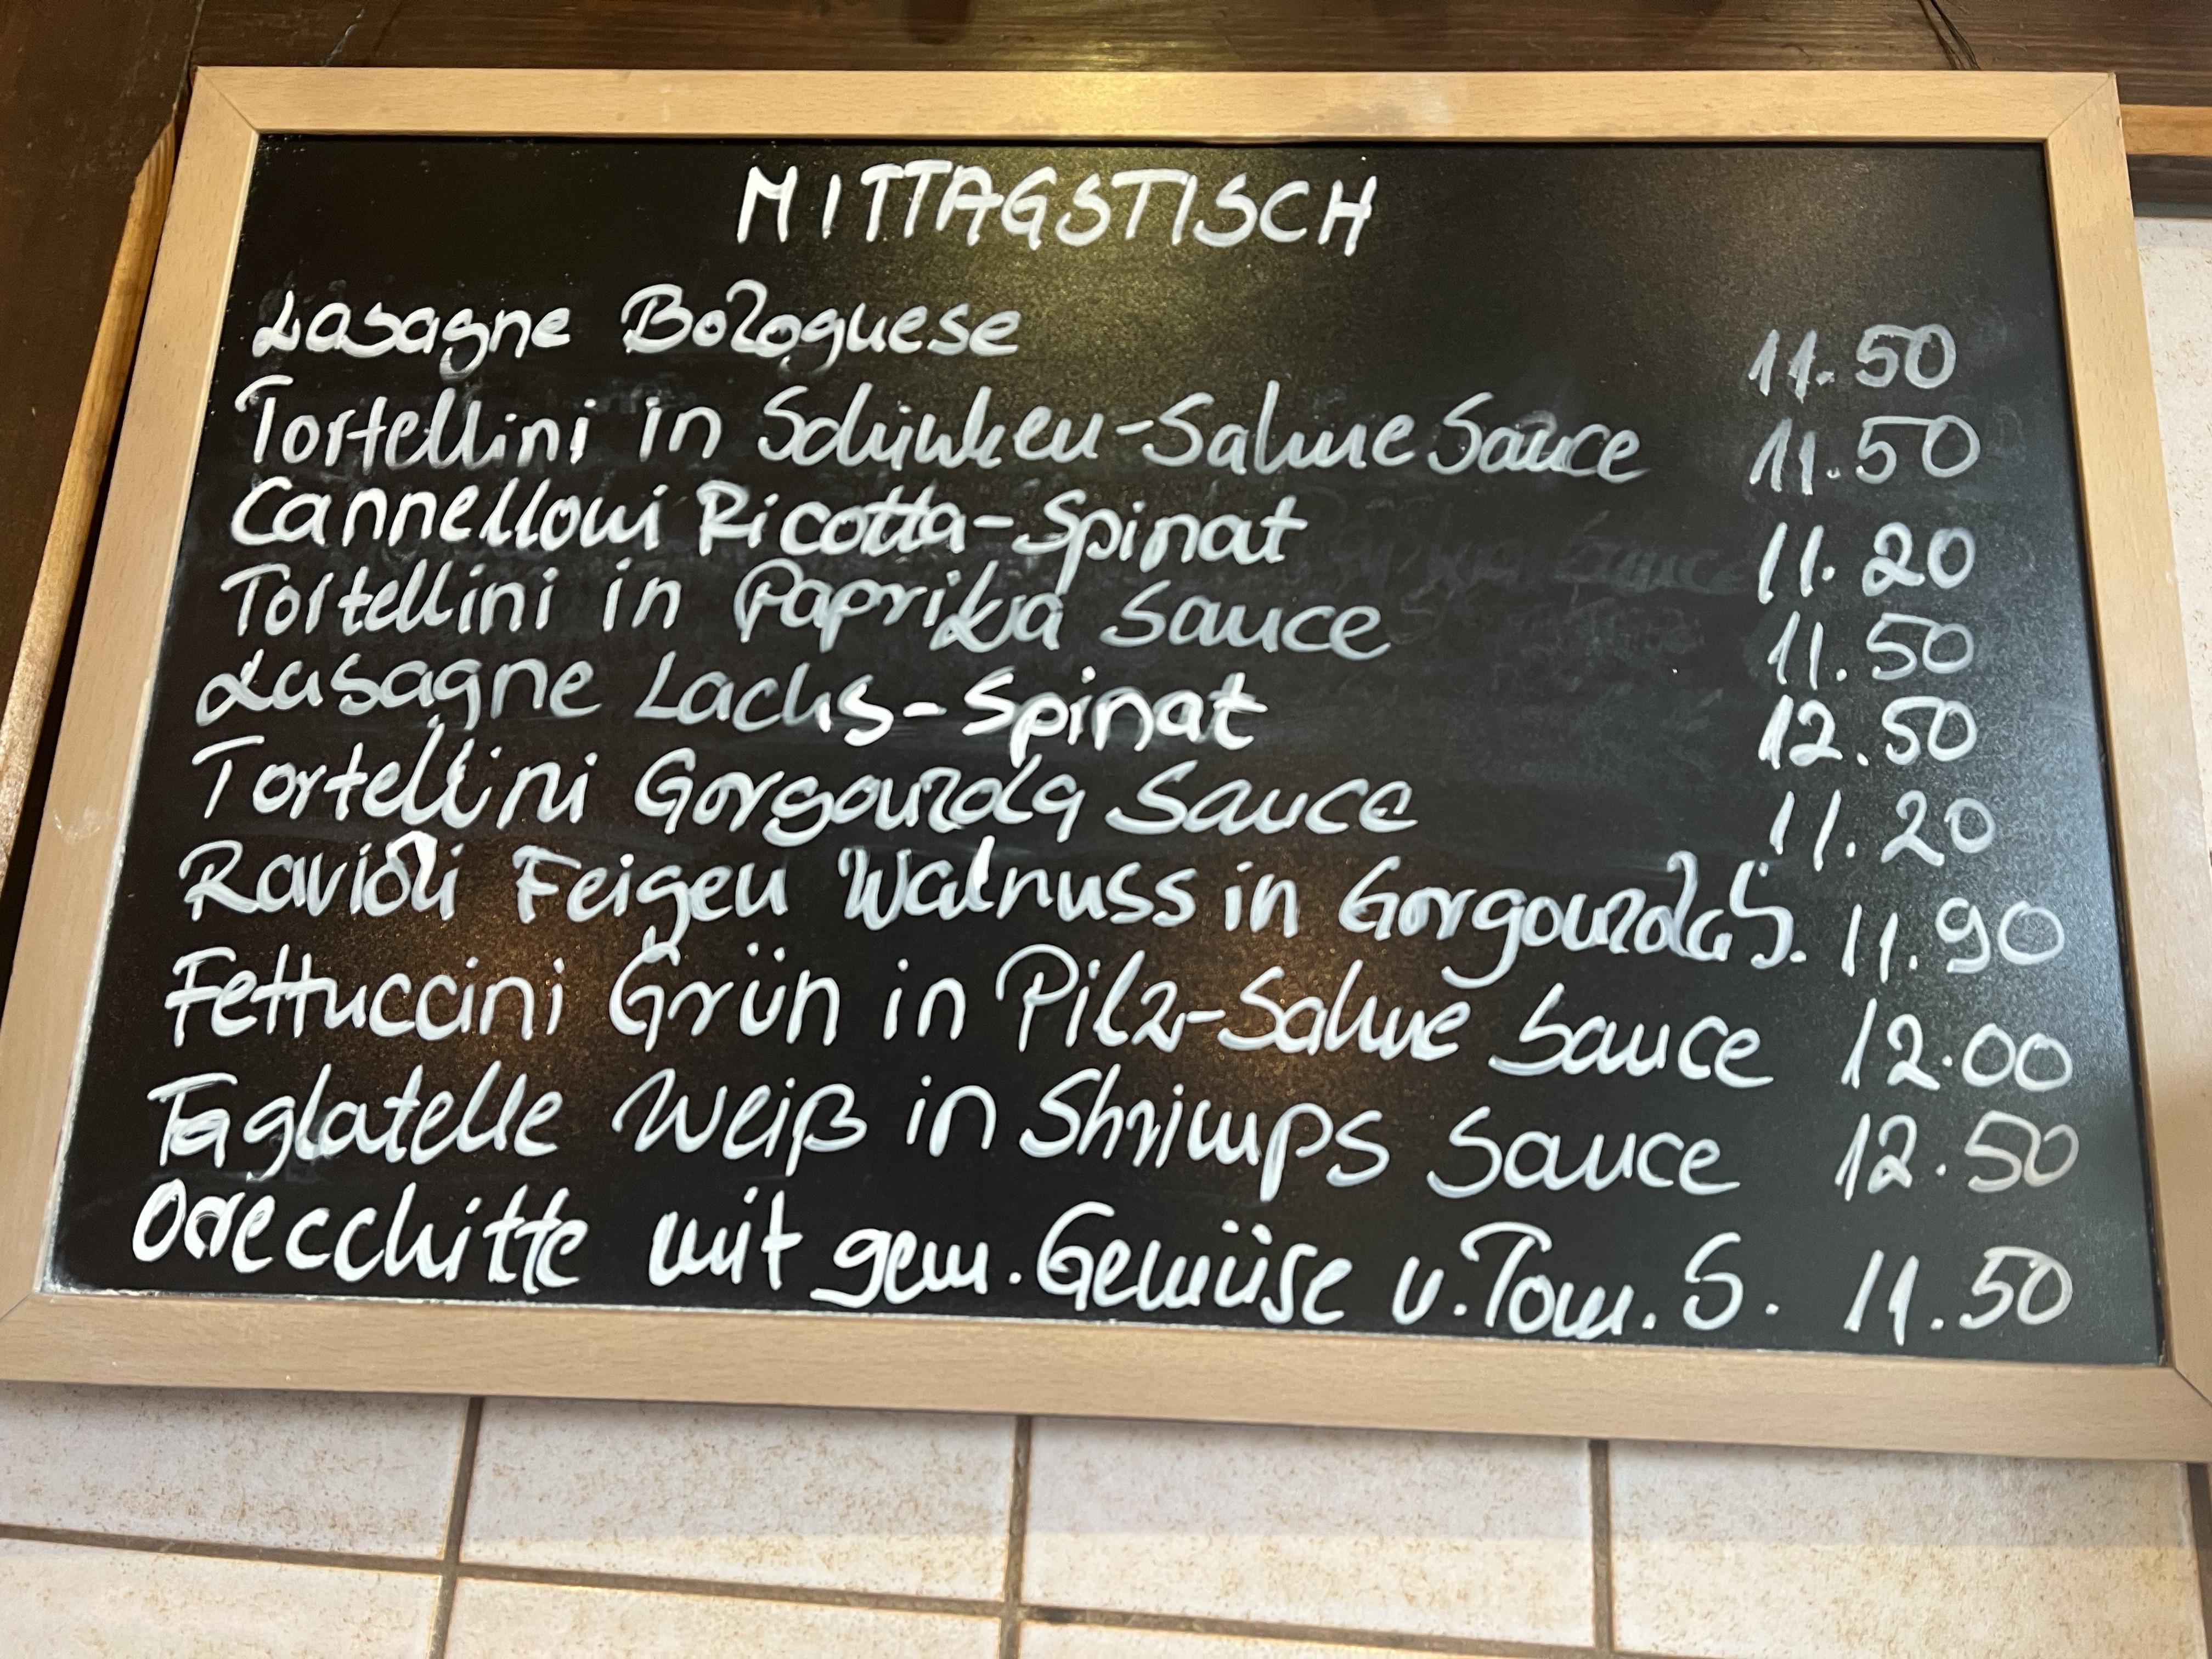 MITTAGSTISCH
Lasagne Bolognese 11.50
Tortellini in Schinken-Sahne Sauce 11.50
Cannelloni Ricotta-Spinat 11.20
Tortellini in Paprika Sauce 11.50
Lasagne Lachs-Spinat 12.50
Tortellini Gorgonzola Sauce 11.20
Ravioli Feigen Walnuss in Gorgonzola S. 11.90
Fettuccini Grün in Pilz-Sahne Sauce 12.00
Taglatelle Weiß in Shrimps Sauce 12.50
Orecchitte mit gem. Gemüse v. Tom. S. 11.50